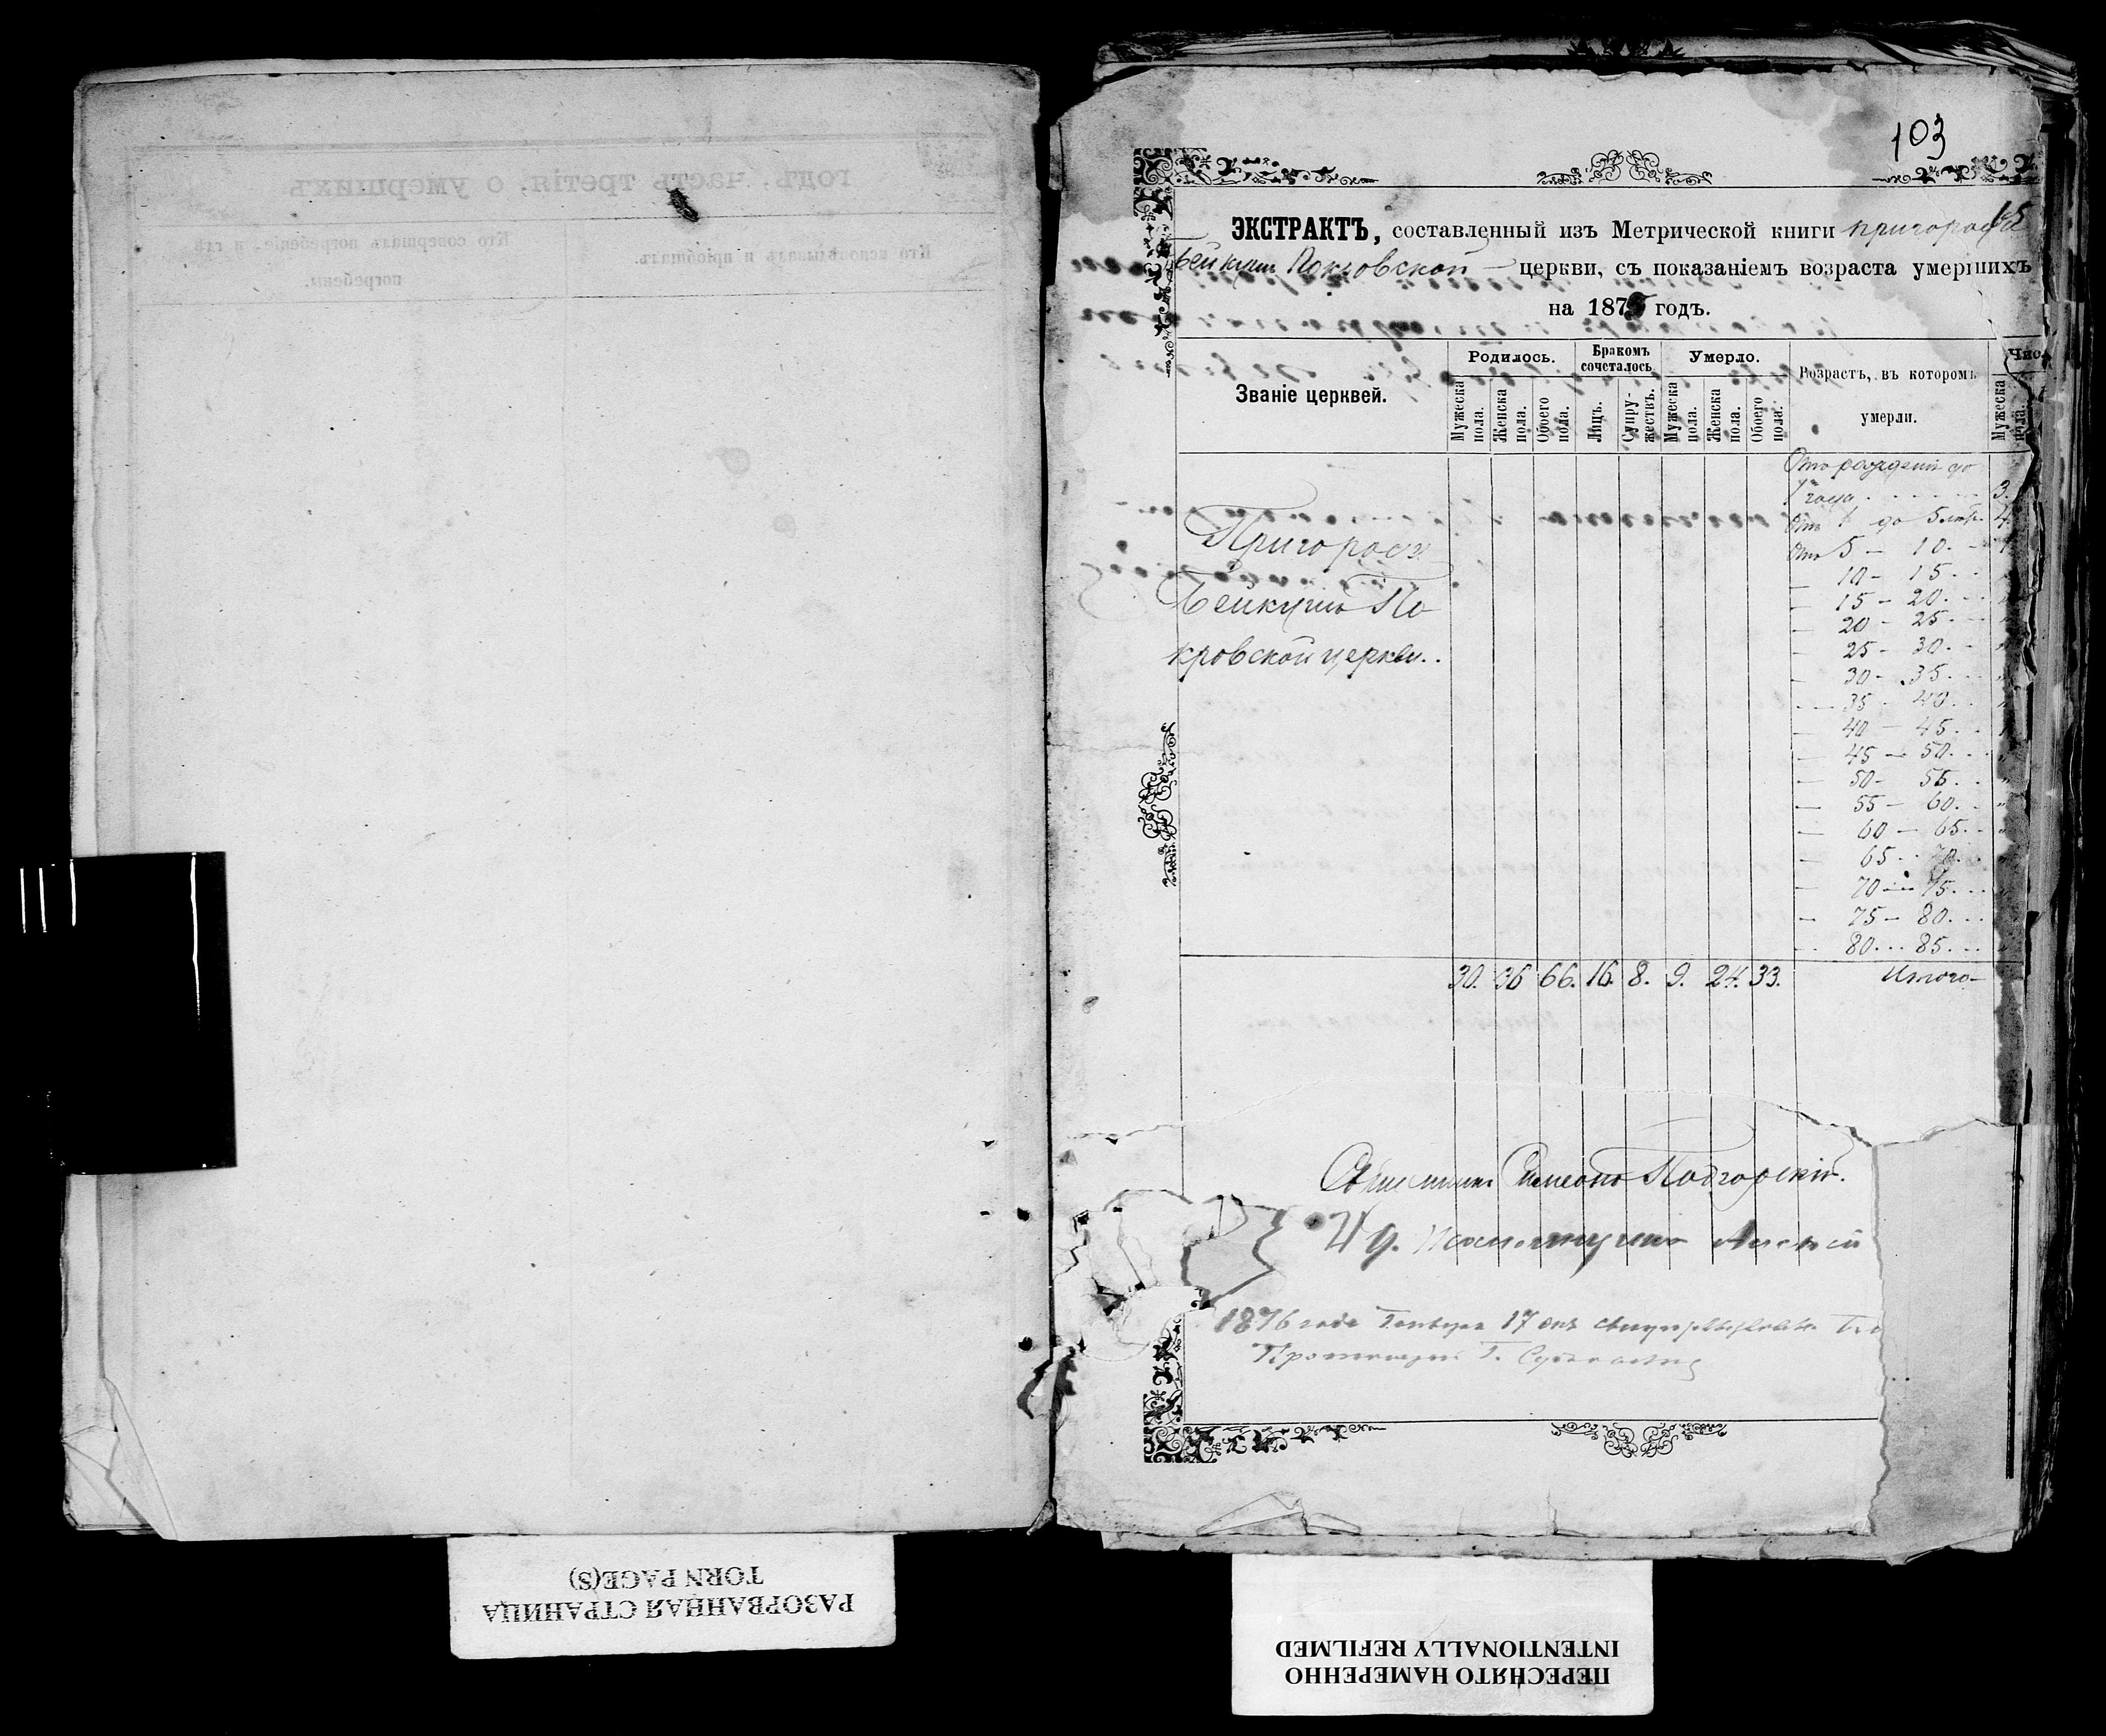 103
15
ЭКСТРАКТЪ, составленный изъ Метрической книги пригорода
Бейкуш Покровской церкви, съ показаніемъ возраста умершихъ
на 1875 годъ.
Званіе церквей.
Родилось.
Мужеска пола.
Женска пола.
Обоего пола.
Бракомъ сочеталось.
Лицъ.
Супружествъ.
Умерло.
Мужеска пола.
Женска пола.
Обоего пола.
Возрастъ, въ которомъ
умерли.
Чис
Мужеска пола.
Пригорода
Бейкушъ По
кровской церкви.
Отъ рожденія до
1 года 3.
Отъ 1 до 5 лѣтъ 4.
Отъ 5 — 10.
— 10 — 15
— 15 — 20
— 20 — 25
— 25 — 30
— 30 — 35
— 35 — 40
— 40 — 45
— 45 — 50
— 50 — 55
— 55 — 60
— 60 — 65
— 65 .. 70
— 70 — 75
— 75 — 80
— 80 ... 85
30. 36 66. 16. 8. 9. 24. 33. Итого
Священникъ Симеонъ Подгорскій.
И д. Псаломщика Алексѣй
1876 года Января 17 дня свидѣтельствовалъ
Протоіерей Г.
годъ, часть третія, о умершихъ.
Кто исповѣдывалъ и пріобщалъ.
Кто совершалъ погребеніе и гдѣ
погребены.
РАЗОРВАННАЯ СТРАНИЦА
TORN PAGE(S)
ПЕРЕСНЯТО НАМЕРЕННО
INTENTIONALLY REFILMED